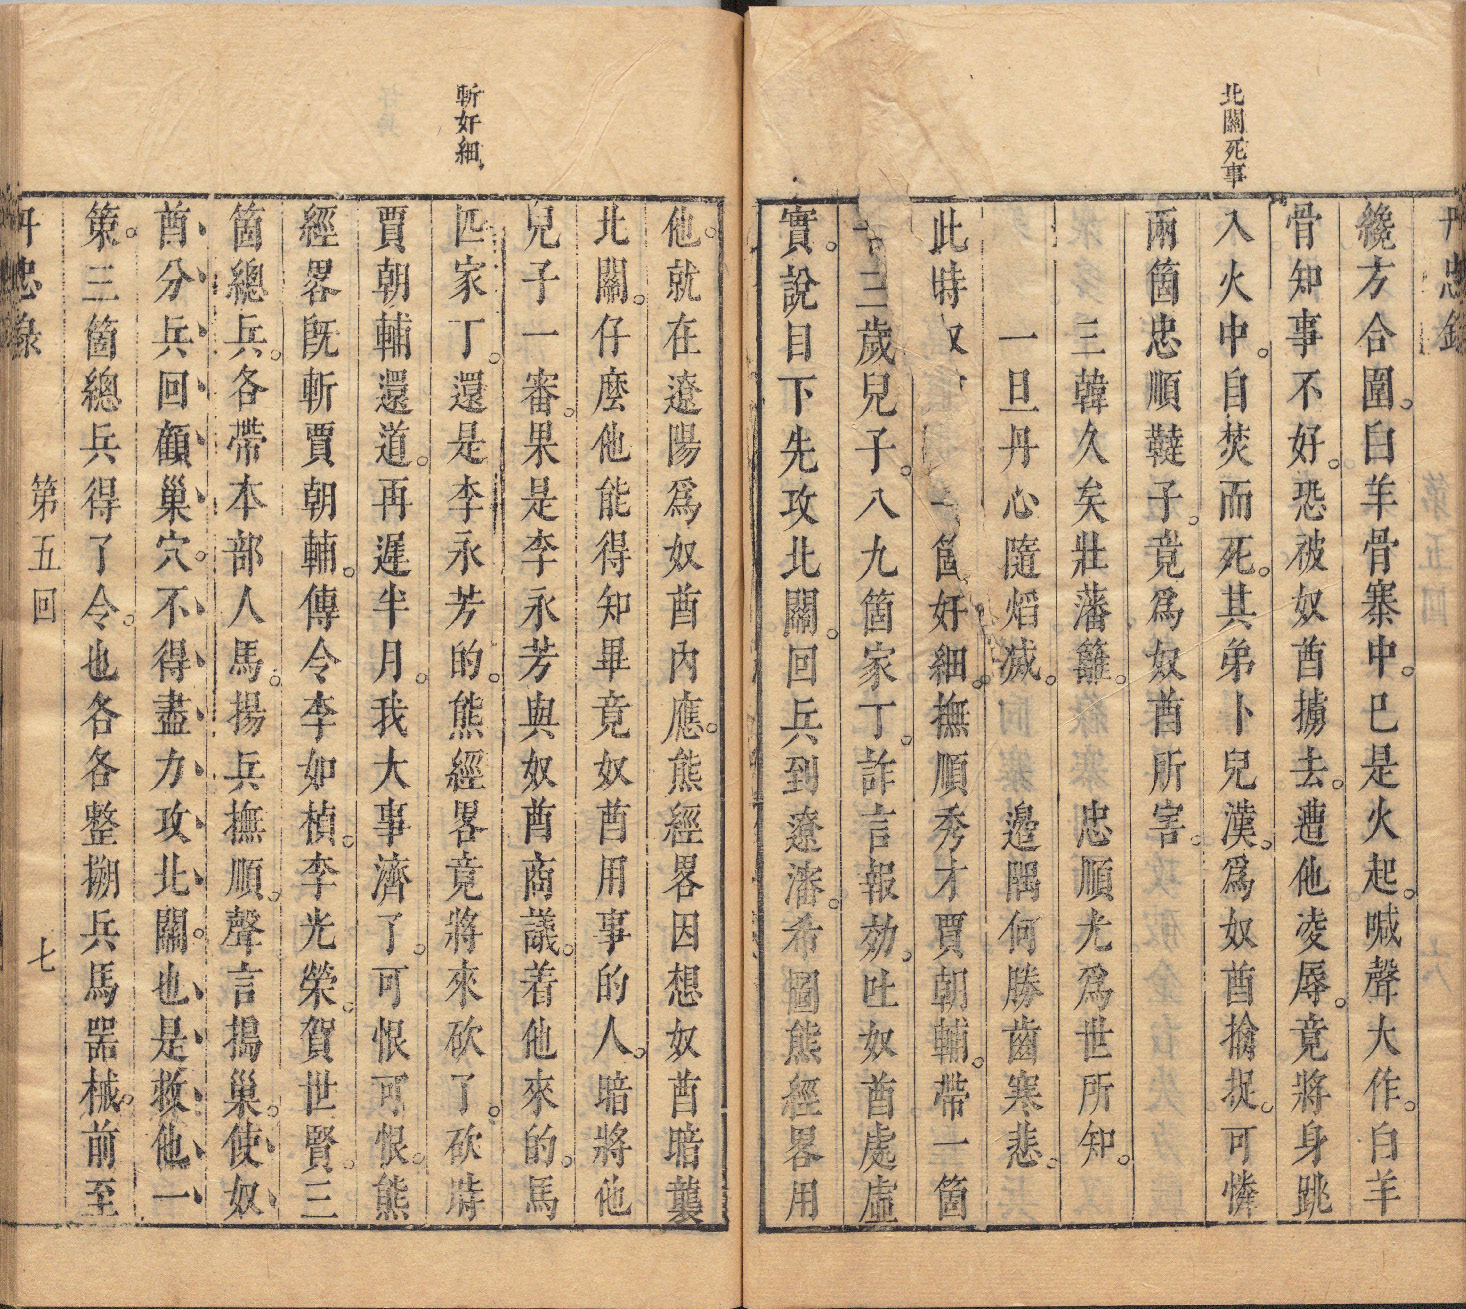 北關死事
纔方合圍。白羊骨寨中。已是火起。喊聲大作。白羊
骨知事不好。恐被奴酋擄去。遭他凌辱。竟將身跳
入火中。自焚而死。其弟卜兒漢。爲奴酋擒捉。可憐
兩箇忠順韃子。竟爲奴酋所害。
三韓久矣壯藩籬。忠順尤爲世所知。
一旦丹心隨焰滅。邊隅何勝齒寒悲。
此時奴 一箇奸細。撫順秀才賈朝輔。帶一箇
十二歲兒子。八九箇家丁。詐言報効。吐奴酋處虛
實。說目下先攻北關。回兵到遼瀋。希圖熊經畧用
他。就在遼陽爲奴酋內應。熊經畧因想奴酋暗襲
北關。仔麼他能得知畢竟奴酋用事的人。暗將他
兒子一審。果是李永芳與奴酋商議。着他來的。馬
斬奸細
匹家丁。還是李永芳的。熊經畧竟將來砍了。砍時
賈朝輔還道。再遲半月。我大事濟了。可恨可恨。熊
經畧旣斬賈朝輔。傳令李如楨。李光榮。賀世賢。三
箇總兵。各帶本部人馬。揚兵撫順。聲言搗巢。使奴
酋分兵回顧巢穴。不得盡力攻北關。也是救他一
策。三箇總兵得了令。也各各整搠兵馬器械。前至
丹忠錄
第五回
七